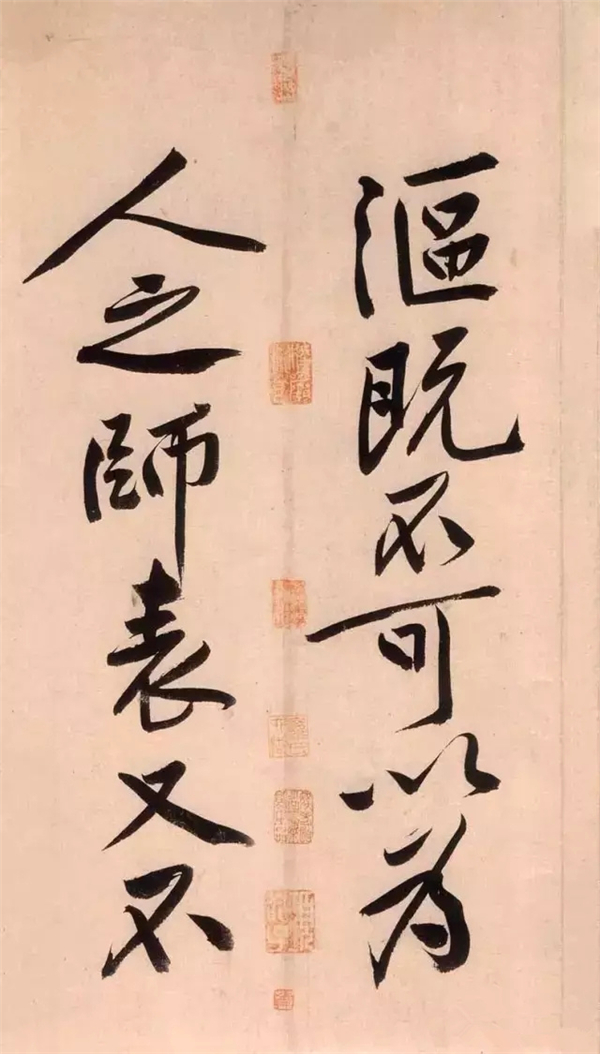 漚既不可以為
人之師表又不